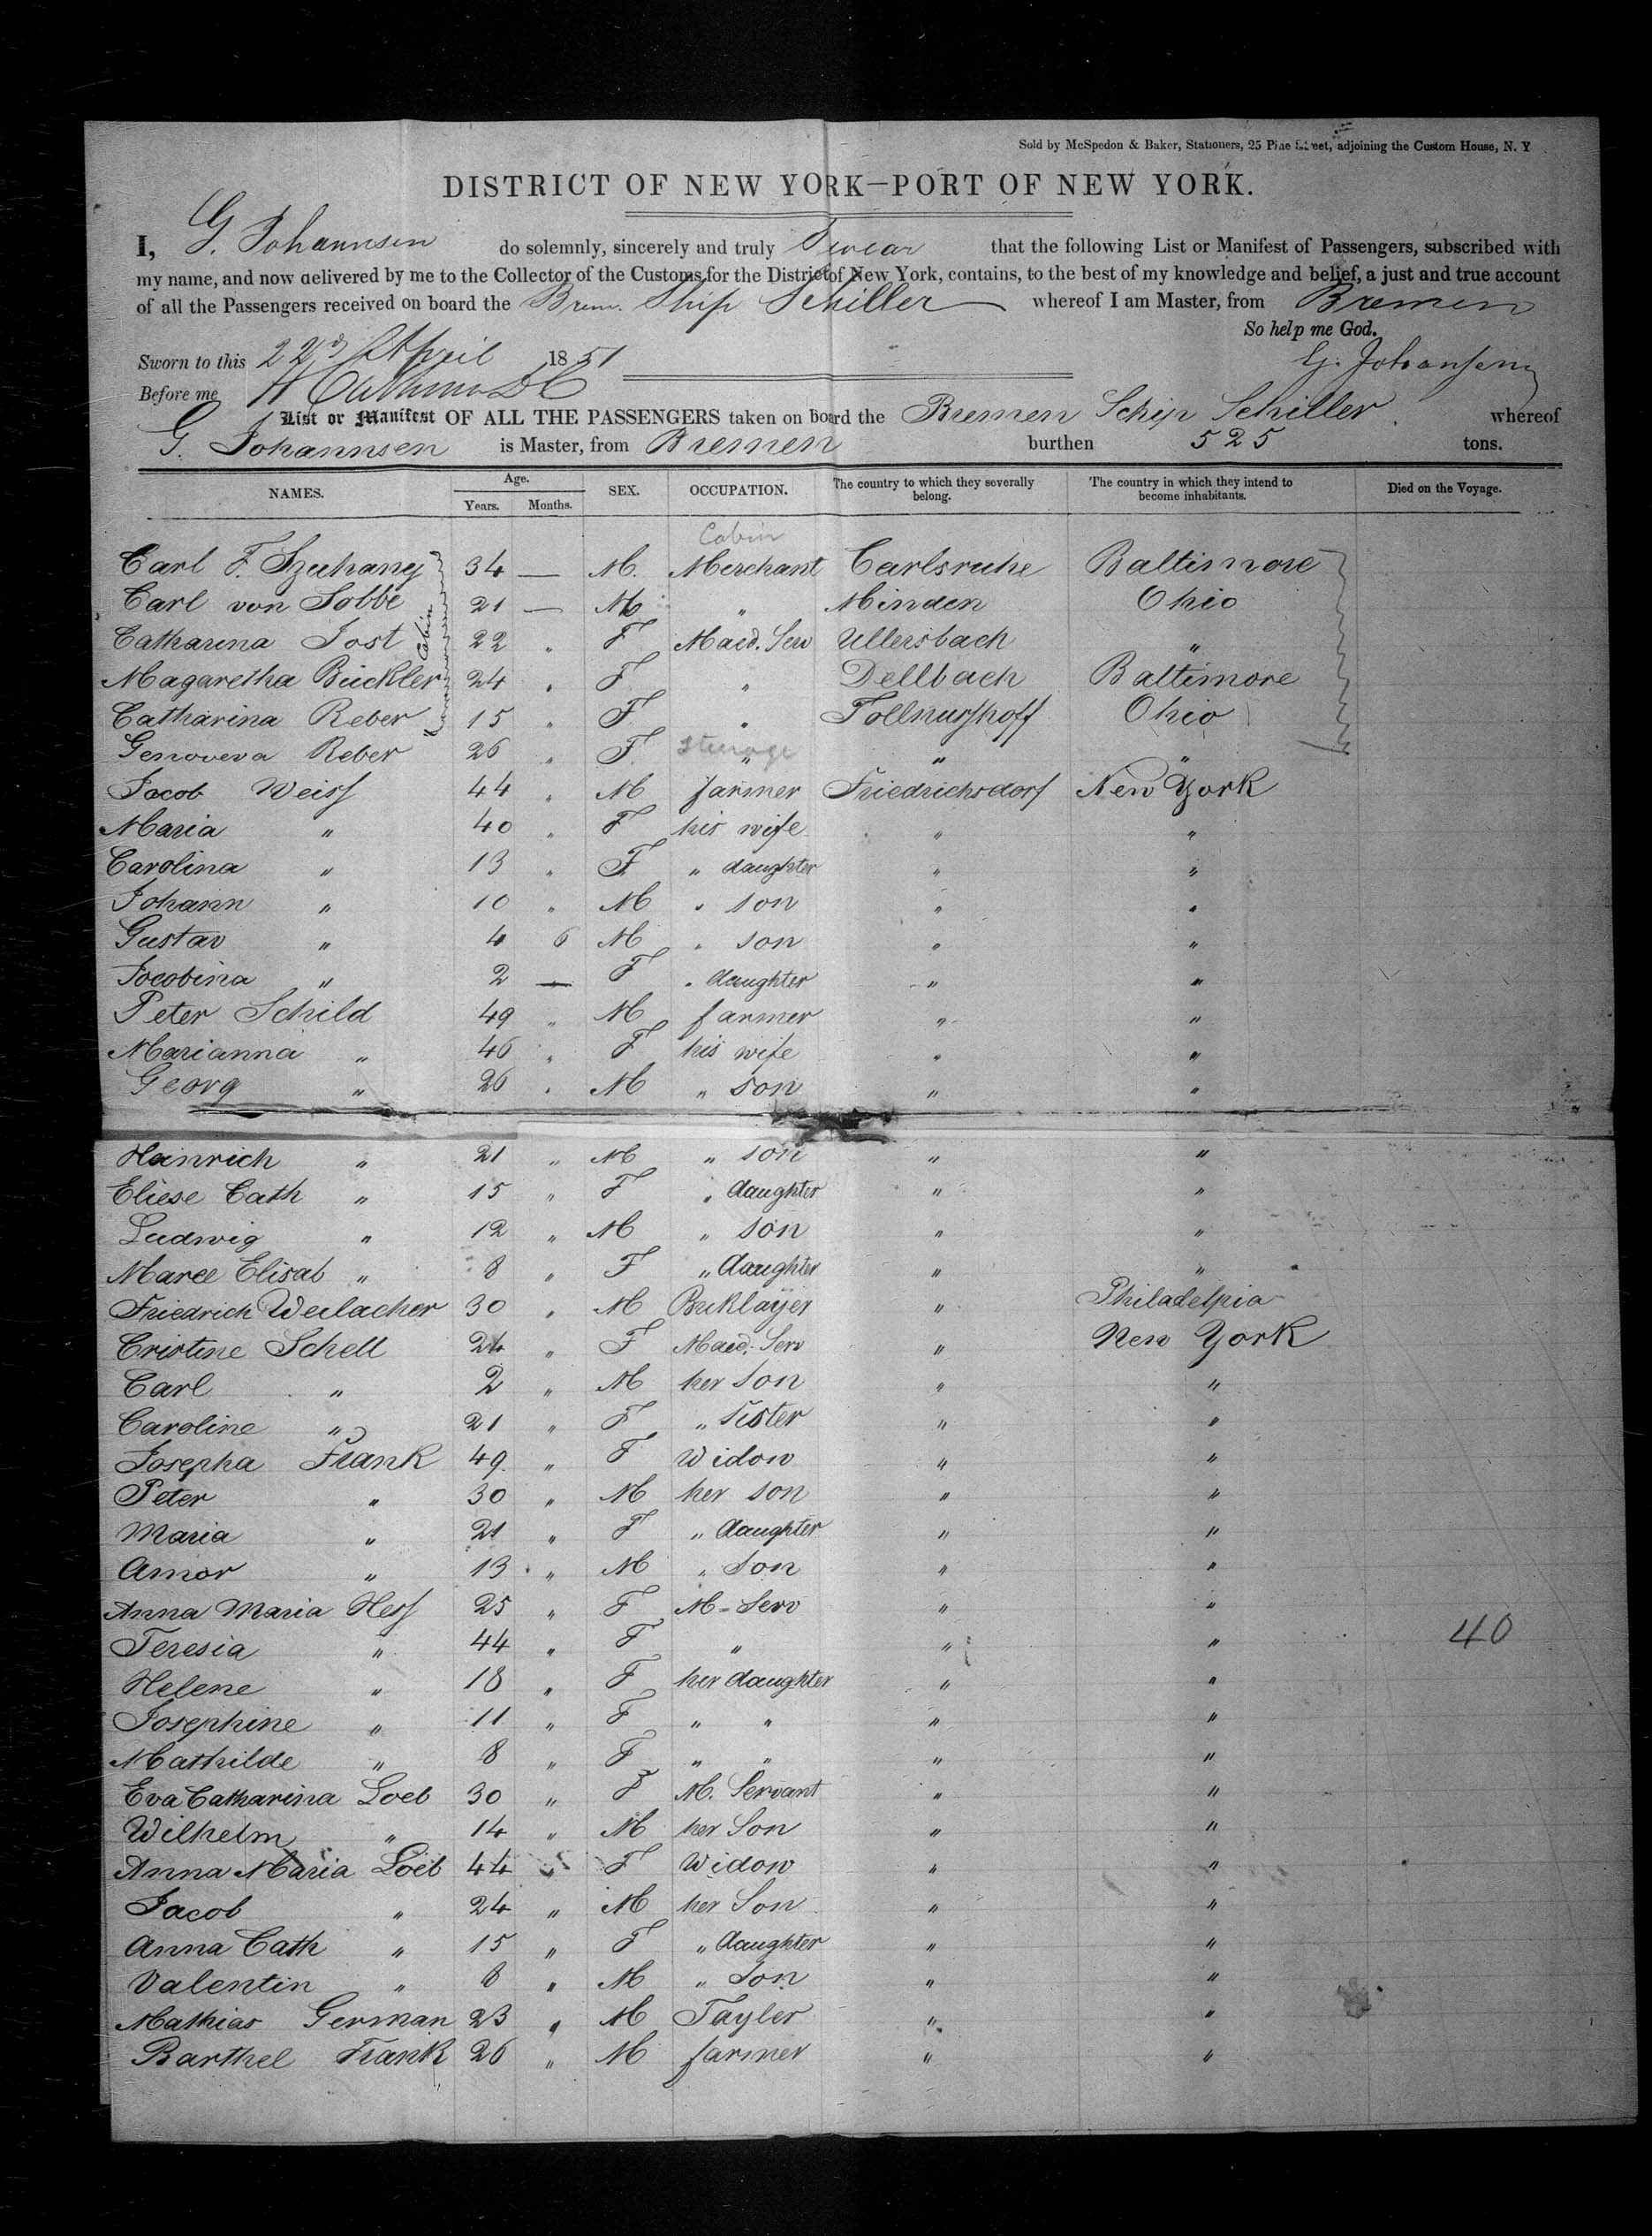 Sold by McSpedon & Baker, Stationers, 25 Pine Street, adjoining the Custom House, N. Y
DISTRICT OF NEW YORK—PORT OF NEW YORK.
I, G. Johannsen do solemnly, sincerely and truly Swear that the following List or Manifest of Passengers, subscribed with
my name, and now delivered by me to the Collector of the Customs for the District of New York, contains, to the best of my knowledge and belief, a just and true account
of all the Passengers received on board the Brem. Ship Schiller whereof I am Master, from Bremen
So help me God.
Sworn to this 22d April 1851 G. Johannsen
Before me
List or Manifest OF ALL THE PASSENGERS taken on board the Bremen Schip Schiller. whereof
G. Johannsen is Master, from Bremen burthen 525 tons.
NAMES. Age. Years. Months. SEX. OCCUPATION. The country to which they severally belong. The country in which they intend to become inhabitants. Died on the Voyage.
Cabin
Carl F. Szuhany 34 — M. Merchant Carlsruhe Baltimore
Carl von Sobbe 21 — M " Minden Ohio
Cabin
Catharina Jost 22 " F Maed. Serv Ullersbach "
Magaretha Bückler 24 " F " Dellbach Baltimore
Catharina Reber 15 " F " Ohio
Steerage
Genoveva Reber 26 " F. " " "
Jacob Weiss 44 " M farmer Friedrichsdorf New York
Maria " 40 " F his wife " "
Carolina " 13 " F " daughter " "
Johann " 10 " M " son " "
Gustav " 4 6 M " son " "
Jocobina " 2 — F " daughter " "
Peter Schild 49 " M farmer " "
Marianna " 46 " F his wife " "
Georg " 26 " M " son " "
Heinrich " 21 " M " son " "
Eliese Cath " 15 " F " daughter " "
Ludwig " 12 " M " son " "
Maree Elisab " 8 " F " daughter " "
Friedrich Weilacher 30 " M Bricklayer " Philadelpia
Cristine Schell 24 " F Maed. Serv " New York
Carl " 2 " M her son " "
Caroline " 21 " F " sister " "
Josepha Frank 49 " F Widow " "
Peter " 30 " M her son " "
Maria " 21 " F " daughter " "
Amor " 13 " M " son " "
Anna Maria Hess 25 " F M - Serv " "
Teresia " 44 " F " " " 40
Helene " 18 " F her daughter " "
Josephine " 11 " F " " " "
Mathilde " 8 " F " " " "
Eva Catharina Loeb 30 " F M. Servant " "
Wilhelm " 14 " M her Son " "
Anna Maria Loeb 44 " F Widow " "
Jacob " 24 " M her Son " "
Anna Cath " 15 " F " daughter " "
Valentin " 8 " M " Son " "
Mathias German 23 " M Tayler " "
Barthel Frank 26 " M farmer " "